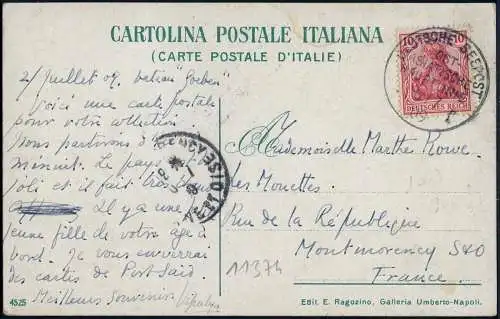 CARTOLINA POSTALE ITALIANA
(CARTE POSTALE D'ITALIE)
2 Juillet 07. bateau "Goeben"
Voici une carte postale
pour votre collection.
Nous partirons à
minuit. Le pays est
joli et il fait très
Il y a une
jeune fille de votre âge à
bord. Je vous enverrai
des cartes de Port Said.
Meilleurs Souvenirs
4525
10 10
DEUTSCHES REICH
DEUTSCHE SEEPOST
OST-
SEINE-&-OISE
Mademoiselle Marthe Rowe
Les Mouettes
Rue de la République
Montmorency S&O
France
11374
Edit. E. Ragozino, Galleria Umberto-Napoli.